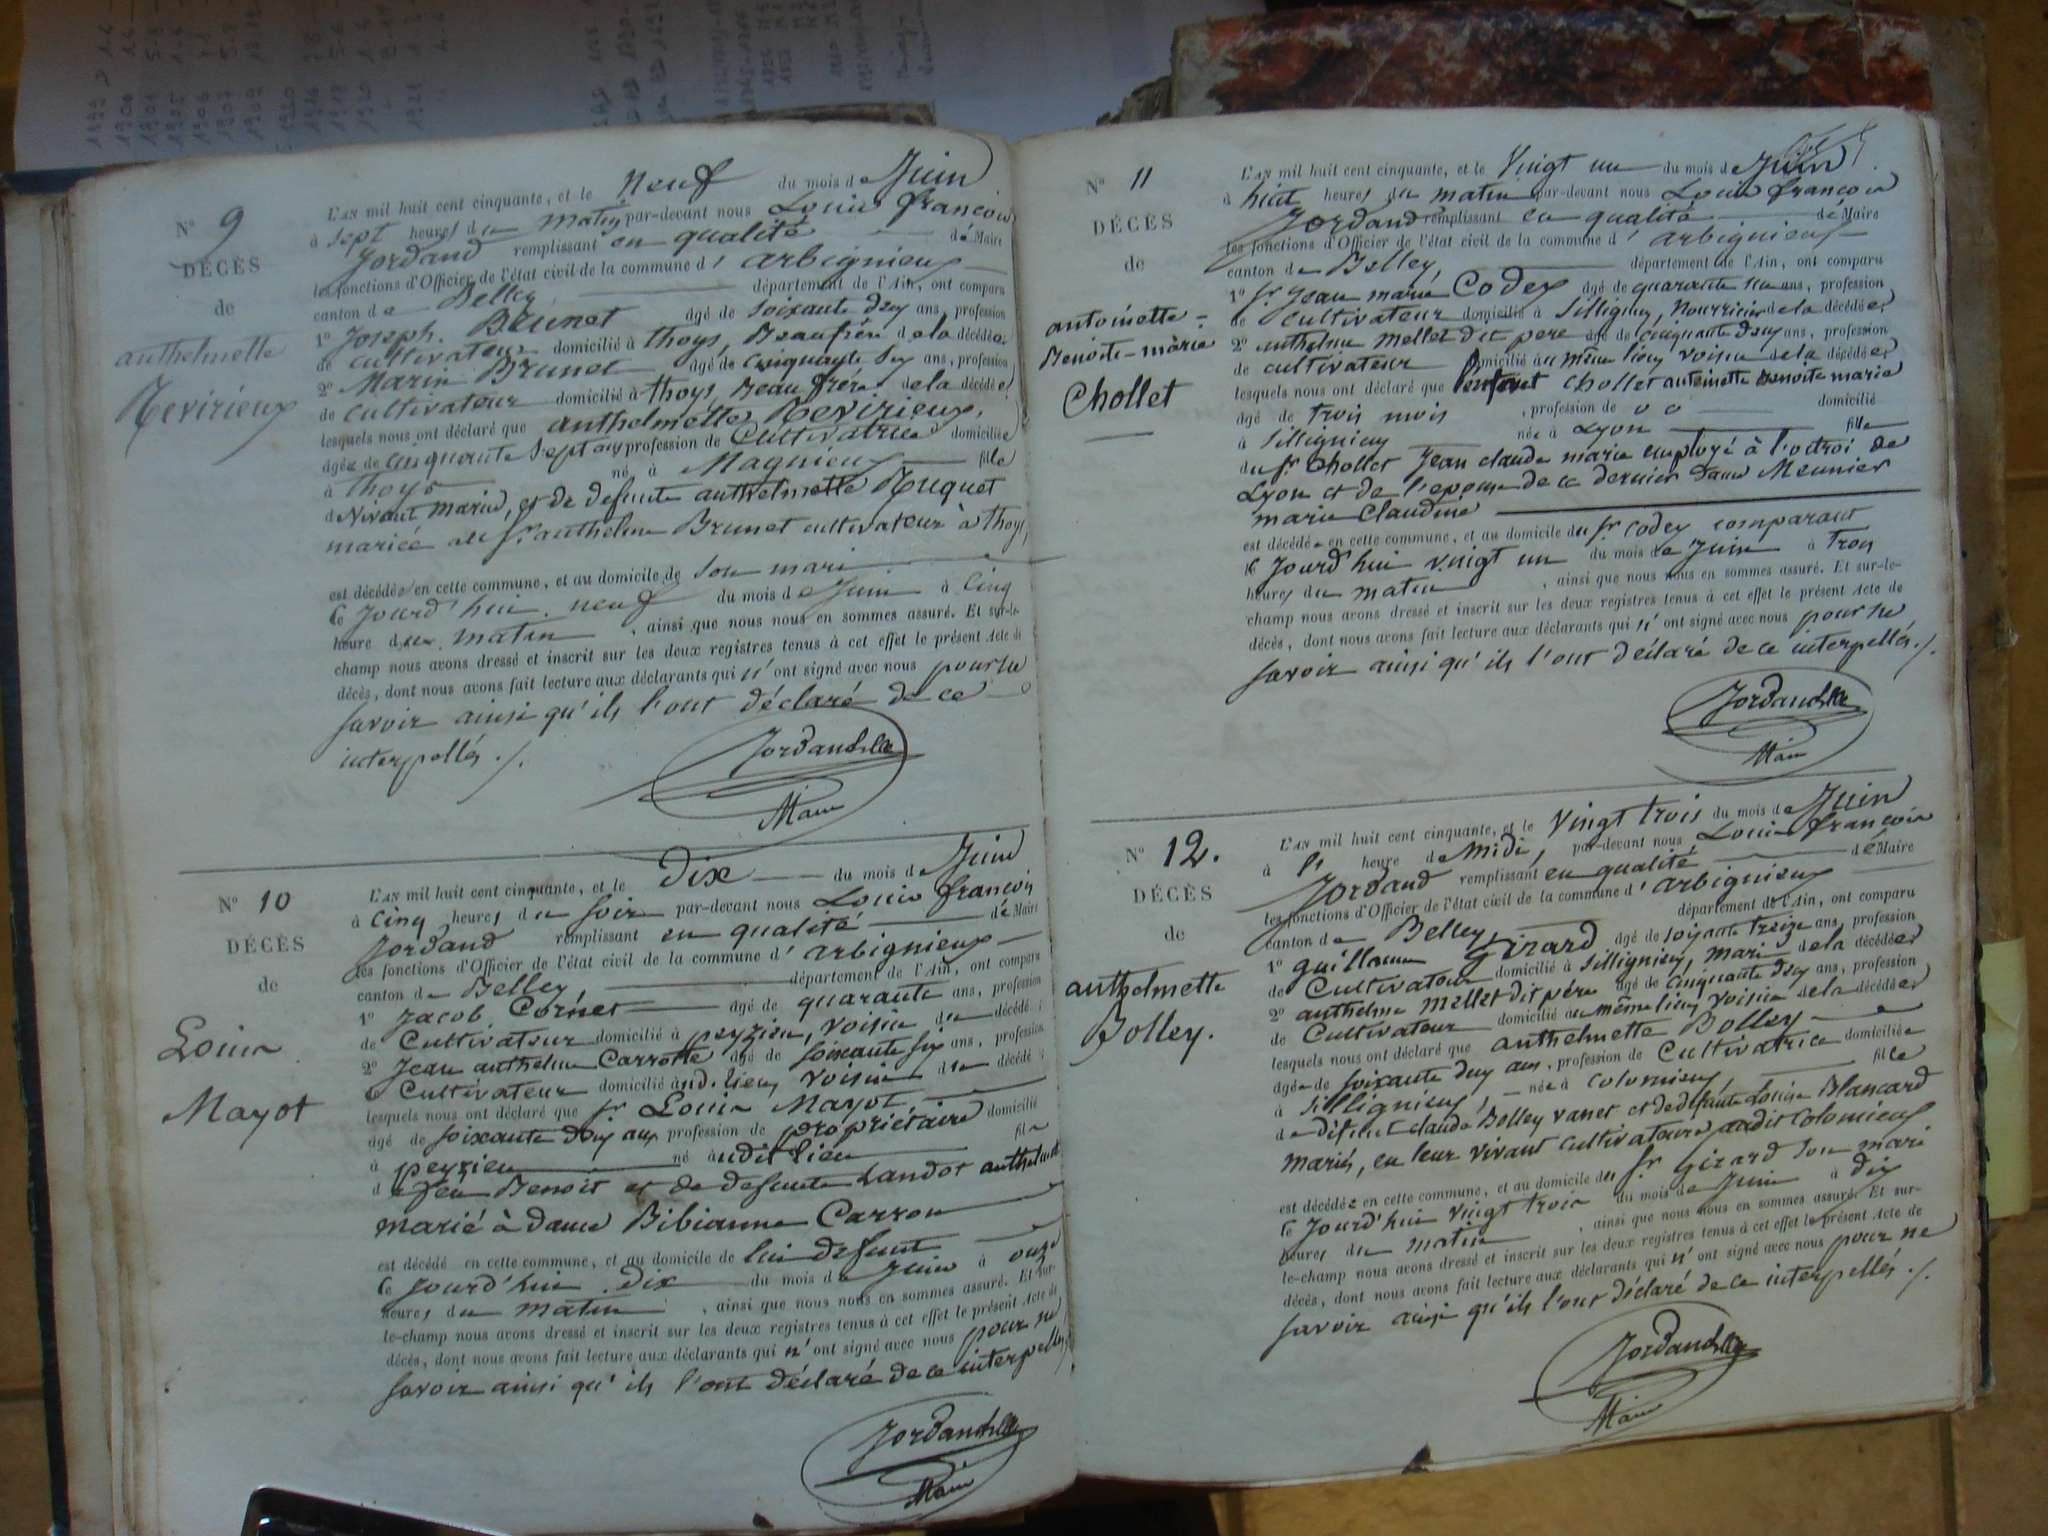 N° 9
DÉCÈS
de
anthelmette
Revirieux
L'AN mil huit cent cinquante, et le neuf du mois de Juin
à sept heures du matin par-devant nous Louis françois
Jordand remplissant en qualité de Maire
les fonctions d'Officier de l'état civil de la commune d' arbignieux
canton de Belley département de l'Ain, ont comparu
1° Joseph Brunet agé de soixante deux ans, profession
de cultivateur domicilié à thoys, Beaufrére de la décédée
2° Marin Brunet agé de cinquante six ans, profession
de cultivateur domicilié à thoys, Beau frére de la décédée
lesquels nous ont déclaré que anthelmette Revirieux,
agée de cinquante sept ans profession de Cultivatrice domiciliée
à thoys né à Magnieux fille
de Vivant marin, et de defunte anthelmette Ruquet
mariée au Sr. anthelme Brunet cultivateur à thoys,
est décédée en cette commune, et au domicile de son mari
le jourd'hui neuf du mois de Juin à cinq
heure du matin, ainsi que nous nous en sommes assuré. Et sur-le-
champ nous avons dressé et inscrit sur les deux registres tenus à cet effet le présent Acte de
décès, dont nous avons fait lecture aux déclarants qui n'ont signé avec nous pour ne
savoir ainsi qu'ils l'ont déclaré de ce
interpellés ./.
Jordand
Maire
N° 10
DÉCÈS
de
Louis
Mayot
L'AN mil huit cent cinquante, et le Dix du mois de Juin
à cinq heures du soir par-devant nous Louis françois
Jordand remplissant en qualité de Maire
les fonctions d'Officier de l'état civil de la commune d' arbignieux
canton de Belley, département de l'Ain, ont comparu
1° Jacob Cornet agé de quarante ans, profession
de Cultivateur domicilié à peyzieu, voisin du décédé ;
2° Jean anthelme Carrotte agé de soixante six ans, profession
de Cultivateur domicilié aud. lieu, voisin du décédé ;
lesquels nous ont déclaré que Sr. Louis Mayot
agé de soixante deux ans profession de propriétaire domicilié
à peyzieu né audit lieu fils
de feu Benoit et de defunte Landot anthelmette
marié à dame Bibianne Carron
est décédé en cette commune, et au domicile de lui defunt
le jourd'hui dix du mois de Juin à onze
heures du matin, ainsi que nous nous en sommes assuré. Et sur-
le-champ nous avons dressé et inscrit sur les deux registres tenus à cet effet le présent Acte de
décès, dont nous avons fait lecture aux déclarants qui n'ont signé avec nous pour ne
savoir ainsi qu'ils l'ont déclaré de ce interpellés
Jordand
Maire
N° 11
DÉCÈS
de
antoinette
Benoite-marie
Chollet
L'AN mil huit cent cinquante, et le Vingt un du mois de Juin
à huit heures du matin par-devant nous Louis françois
Jordand remplissant en qualité de Maire
les fonctions d'Officier de l'état civil de la commune d' arbignieux
canton de Belley, département de l'Ain, ont comparu
1° Sr. Jean marie Codex agé de quarante un ans, profession
de cultivateur domicilié à Sillignieu, Nourricier de la décédée,
2° anthelme Mellet dit pere agé de cinquante deux ans, profession
de cultivateur domicilié au même lieu, voisin de la décédée,
lesquels nous ont déclaré que l'enfant Chollet antoinette Benoite marie
agé de trois mois, profession de domicilié
à Sillignieu née à Lyon fille
du Sr Chollet Jean claude marie employé à l'octroi de
Lyon et de l'epouse de ce dernier Dame Meunier
marie Claudine
est décédée en cette commune, et au domicile du Sr Codex comparant
le jourd'hui vingt un du mois de Juin à trois
heures du matin, ainsi que nous nous en sommes assuré. Et sur-le-
champ nous avons dressé et inscrit sur les deux registres tenus à cet effet le présent Acte de
décès, dont nous avons fait lecture aux déclarants qui n'ont signé avec nous pour ne
savoir ainsi qu'ils l'ont déclaré de ce interpellés ./.
Jordand
Maire
N° 12.
DÉCÈS
de
anthelmette
Bolley.
L'AN mil huit cent cinquante, et le Vingt trois du mois de Juin
à l' heure de Midi, par-devant nous Louis françois
Jordand remplissant en qualité de Maire
les fonctions d'Officier de l'état civil de la commune d' arbignieux
canton de Belley, département de l'Ain, ont comparu
1° guillaume Girard agé de soixante treize ans, profession
de Cultivateur domicilié à Sillignieu, mari de la décédée,
2° anthelme Mellet dit pére agé de cinquante deux ans, profession
de Cultivateur domicilié au même lieu, voisin de la décédée
lesquels nous ont déclaré que anthelmette Bolley
agée de soixante deux ans, profession de Cultivatrice domiciliée
à Sillignieux, née à Colomieux fille
de Défunt claude Bolley vanet et de defunte Louise Blancard
mariés, en leur vivant cultivateurs audit Colomieux
est décédée en cette commune, et au domicile du Sr. Girard son mari
le jourd'hui vingt trois du mois de Juin à dix
heures du matin, ainsi que nous nous en sommes assuré. Et sur-
le-champ nous avons dressé et inscrit sur les deux registres tenus à cet effet le présent Acte de
décès, dont nous avons fait lecture aux déclarants qui n'ont signé avec nous pour ne
savoir ainsi qu'ils l'ont déclaré de ce interpellés ./.
Jordand
Maire